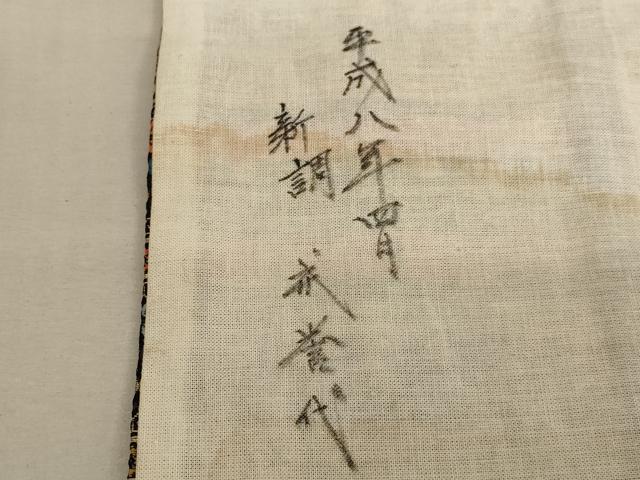 平成八年四月
新調 誉代